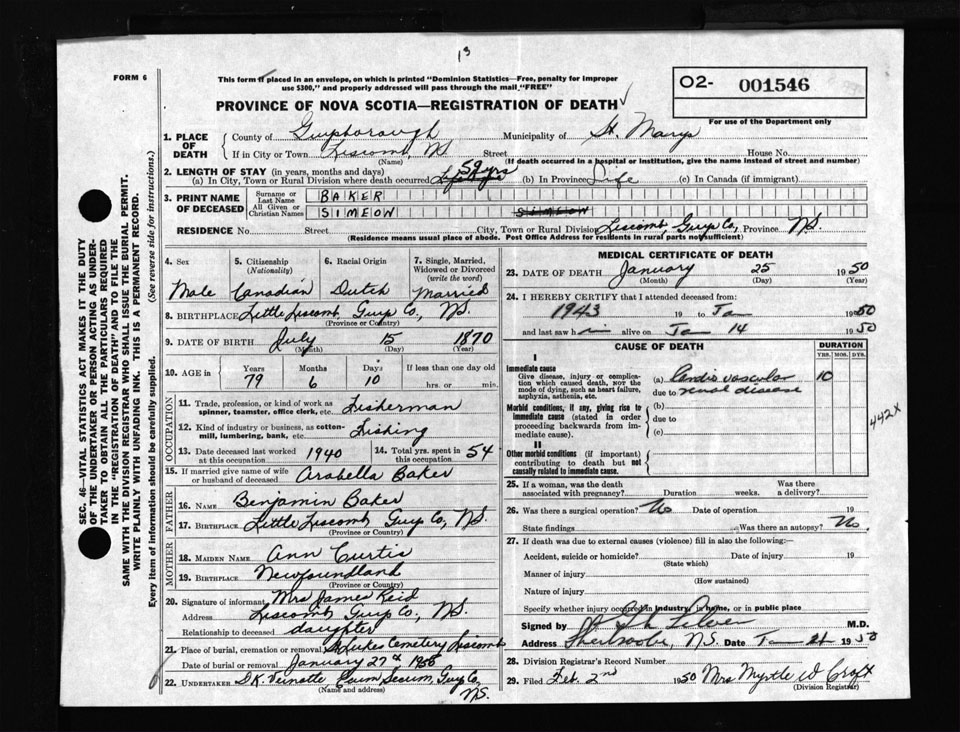 13
FORM 6
This form if placed in an envelope, on which is printed "Dominion Statistics—Free, penalty for improper
use $300," and properly addressed will pass through the mail "FREE"
O2- 001546
For use of the Department only
PROVINCE OF NOVA SCOTIA—REGISTRATION OF DEATH
1. PLACE OF DEATH
County of Guysborough Municipality of St. Marys
If in City or Town Liscomb, NS Street House No.
(Name) (If death occurred in a hospital or institution, give the name instead of street and number)
2. LENGTH OF STAY (in years, months and days)
(a) In City, Town or Rural Division where death occurred 59 yrs (b) In Province Life (c) In Canada (if immigrant)
3. PRINT NAME OF DECEASED
Surname or Last Name BAKER
All Given or Christian Names SIMEON SIMEON
RESIDENCE No. Street City, Town or Rural Division Liscomb, Guys Co, Province N.S.
(Residence means usual place of abode. Post Office Address for residents in rural parts not sufficient)
4. Sex 5. Citizenship (Nationality) 6. Racial Origin 7. Single, Married, Widowed or Divorced (write the word)
Male Canadian Dutch Married
8. BIRTHPLACE Little Liscomb, Guys Co., N.S.
(Province or Country)
9. DATE OF BIRTH July 15 1870
(Month) (Day) (Year)
10. AGE in Years Months Days If less than one day old
79 6 10 hrs. or min.
OCCUPATION
11. Trade, profession, or kind of work as spinner, teamster, office clerk, etc. Fisherman
12. Kind of industry or business, as cotton-mill, lumbering, bank, etc. Fishing
13. Date deceased last worked at this occupation 1940 14. Total yrs. spent in this occupation 54
15. If married give name of wife or husband of deceased Arabella Baker
FATHER
16. NAME Benjamin Baker
17. BIRTHPLACE Little Liscomb Guys Co, N.S.
(Province or Country)
MOTHER
18. MAIDEN NAME Ann Curtis
19. BIRTHPLACE Newfoundland
(Province or Country)
20. Signature of informant Mrs James Reid
Address Liscomb, Guys Co., N.S.
Relationship to deceased daughter
21. Place of burial, cremation or removal St Lukes Cemetery Liscomb
Date of burial or removal January 27th 1950
22. UNDERTAKER D.K. Veinotte Ecum Secum, Guys Co, N.S.
(Name and address)
MEDICAL CERTIFICATE OF DEATH
23. DATE OF DEATH January 25 1950
(Month) (Day) (Year)
24. I HEREBY CERTIFY that I attended deceased from:
1943 19 to Jan 1950
and last saw him alive on Jan 14 1950
CAUSE OF DEATH DURATION
YRS. MOS. DYS.
I
Immediate cause
Give disease, injury or complication which caused death, NOT the mode of dying, such as heart failure, asphyxia, asthenia, etc.
(a) Cardio vascular 10
due to renal disease
Morbid conditions, if any, giving rise to immediate cause (stated in order proceeding backwards from immediate cause).
(b)
due to
(c)
442X
II
Other morbid conditions (if important) contributing to death but not causally related to immediate cause.
25. If a woman, was the death associated with pregnancy? Duration weeks. Was there a delivery?
26. Was there a surgical operation? No Date of operation 19
State findings Was there an autopsy? No
27. If death was due to external causes (violence) fill in also the following:—
Accident, suicide or homicide? Date of injury 19
(State which)
Manner of injury
(How sustained)
Nature of injury
Specify whether injury occurred in industry, in home, or in public place
Signed by M.D.
Address Sherbrooke, N.S. Date Jan 1950
28. Division Registrar's Record Number
29. Filed Feb. 2nd 1950 Mrs Myrtle W Croft
(Division Registrar)
SEC. 46—VITAL STATISTICS ACT MAKES IT THE DUTY
OF THE UNDERTAKER OR PERSON ACTING AS UNDER-
TAKER TO OBTAIN ALL THE PARTICULARS REQUIRED
IN THE "REGISTRATION OF DEATH" AND TO FILE THE
SAME WITH THE DIVISION REGISTRAR WHO SHALL ISSUE THE BURIAL PERMIT.
WRITE PLAINLY WITH UNFADING INK. THIS IS A PERMANENT RECORD.
Every item of information should be carefully supplied. (See reverse side for instructions.)